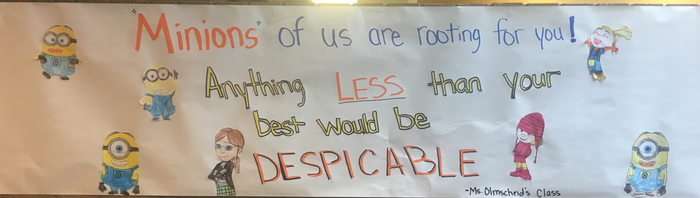 "Minions" of us are rooting for you!
Anything LESS than your
best would be
DESPICABLE
-Ms. Olmscheid's Class